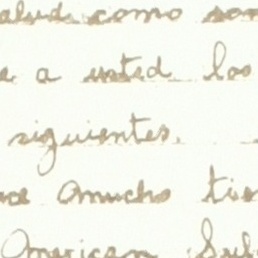 salud como son
e a usted los
siguientes.
ce Omucho tie
American Sub